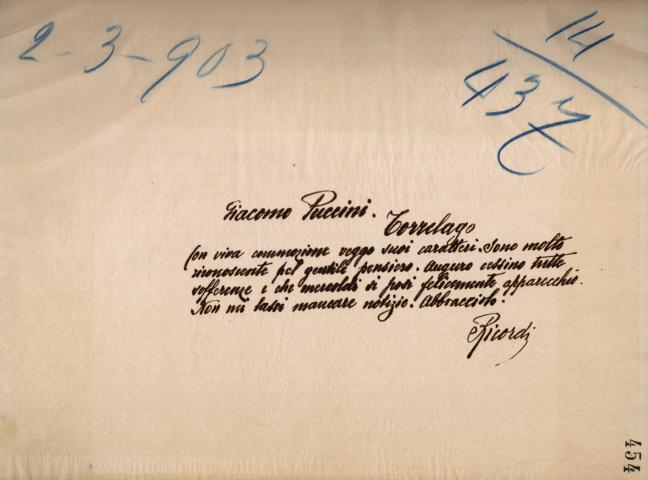 2-3-903
14/437
Giacomo Puccini.
Torrelago
Con viva commozione veggo suoi caratteri. Sono molto
riconoscente pel gentile pensiero. Auguro cessino tutte
sofferenze e che mercoledì si posi felicemente apparecchio.
Non mi lasci mancare notizie. Abbracciolo.
Ricordi
454